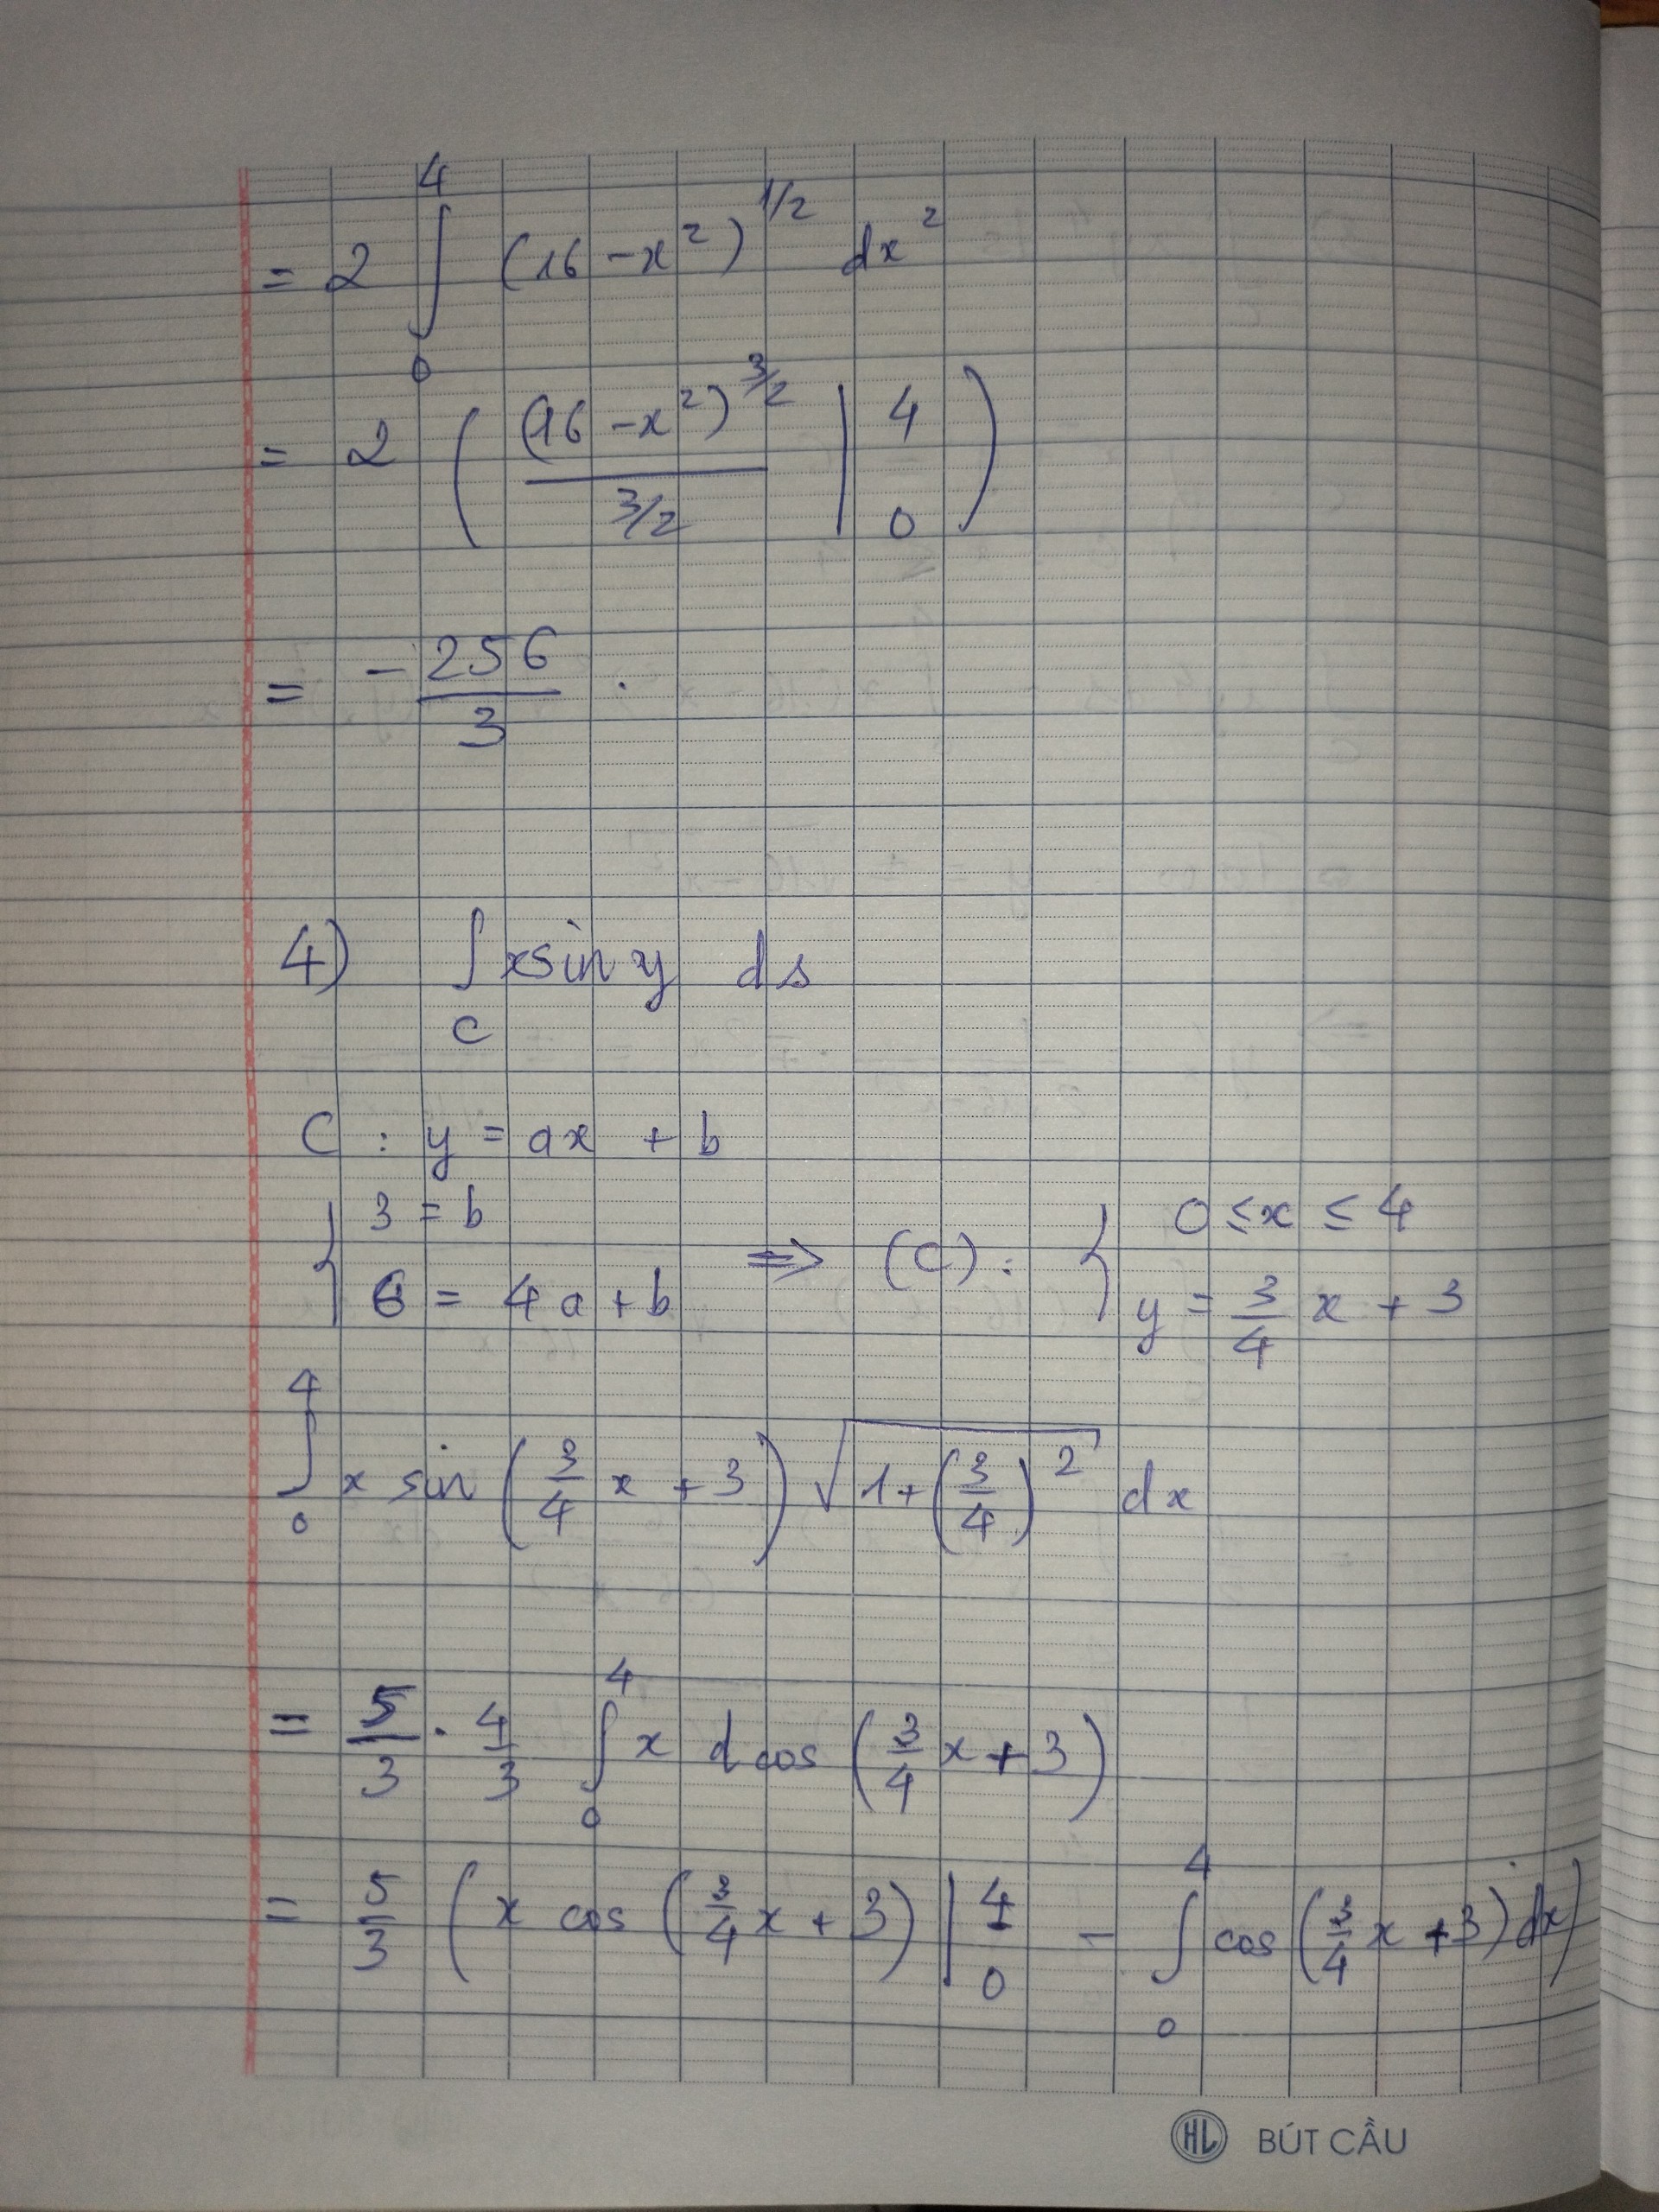 = 2 ∫₀⁴ (16 - x²)^{1/2} dx²
= 2 ( (16 - x²)^{3/2} / (3/2) |₀⁴ )
= -256/3 .
4) ∫_C x sin y ds
C : y = ax + b
{ 3 = b ; 6 = 4a + b ⇒ (C) : { 0 ≤ x ≤ 4 ; y = 3/4 x + 3
∫₀⁴ x sin (3/4 x + 3) √(1 + (3/4)²) dx
= 5/3 . 4/3 ∫₀⁴ x d cos (3/4 x + 3)
= 5/3 ( x cos (3/4 x + 3) |₀⁴ - ∫₀⁴ cos (3/4 x + 3) dx )
HL BÚT CẦU